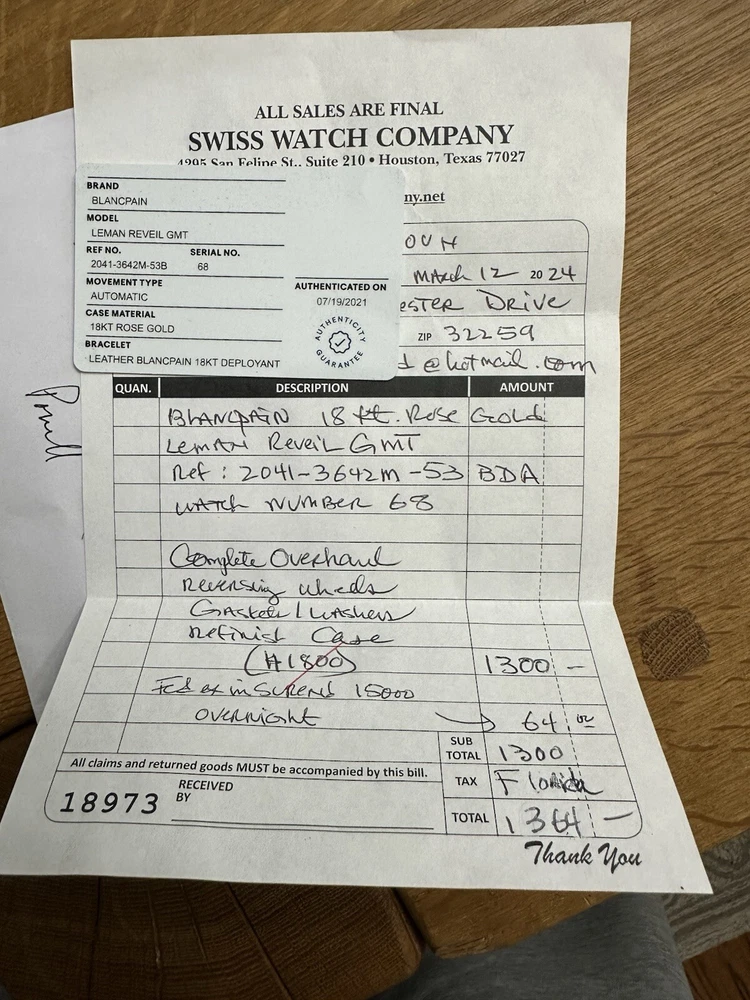 ALL SALES ARE FINAL
SWISS WATCH COMPANY
4295 San Felipe St., Suite 210 • Houston, Texas 77027
ny.net
BRAND
BLANCPAIN
MODEL
LEMAN REVEIL GMT
REF NO. SERIAL NO.
2041-3642M-53B 68
MOVEMENT TYPE
AUTOMATIC
CASE MATERIAL
18KT ROSE GOLD
BRACELET
LEATHER BLANCPAIN 18KT DEPLOYANT
AUTHENTICATED ON
07/19/2021
AUTHENTICITY
GUARANTEE
OUN
MARch 12 20 24
ESTER DRIVE
ZIP 32259
d@hotmail.com
QUAN. DESCRIPTION AMOUNT
BLANCPAIN 18 kt. Rose Gold
LEMAN Reveil GMT
Ref: 2041-3642M-53 BDA
WATCH NUMBER 68
Complete Overhaul
Reversing wheels
Gaskets/washers
Refinish Case
(#1800) 1300 —
Fed ex inSURENS 15000
OVERNIGHT 64 00
SUB TOTAL 1300
TAX Florida
TOTAL 1364 —
All claims and returned goods MUST be accompanied by this bill.
18973
RECEIVED BY
Thank You
Powell